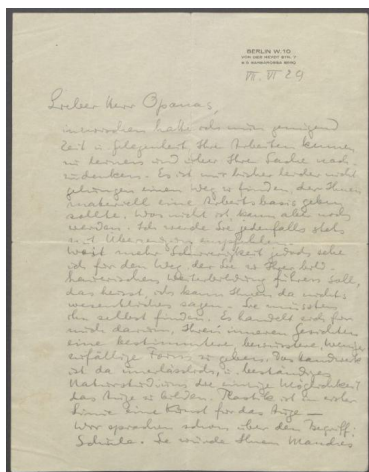 BERLIN W. 10
VON DER HEYDT STR. 7
VII. VI 29
Lieber Herr Opanas,
inzwischen hatte ich genügend
Zeit u Gelegenheit Ihre Arbeiten kennen
zu lernen und über Ihre Sache nach-
zudenken. Es ist mir bisher leider nicht
gelungen einen Weg zu finden, der Ihnen
materiell eine Arbeitsbasis geben
sollte. Was nicht ist, kann aber noch
werden. Ich werde Sie jedenfalls stets
mit Überzeugung empfehlen.
Weit mehr Schwierigkeit jedoch sehe
ich für den Weg, der Sie zu Ihrer bild-
hauerischen Weiterbildung führen soll,
das heisst, ich kann Ihnen da nichts
wesentliches sagen. Sie müssten
ihn selbst finden. Es handelt sich für
mich darum, Ihren inneren Gesichten
eine bestimmtere, bewusstere, weniger
zufällige Form zu geben. Das Handwerk
ist da unerlässlich, u. beständiges
Naturstudium die einzige Möglichkeit
das Auge zu bilden. Plastik ist in erster
Linie eine Kunst für das Auge —
Wir sprachen schon über den Begriff:
Schule. Es würde Ihnen Manches